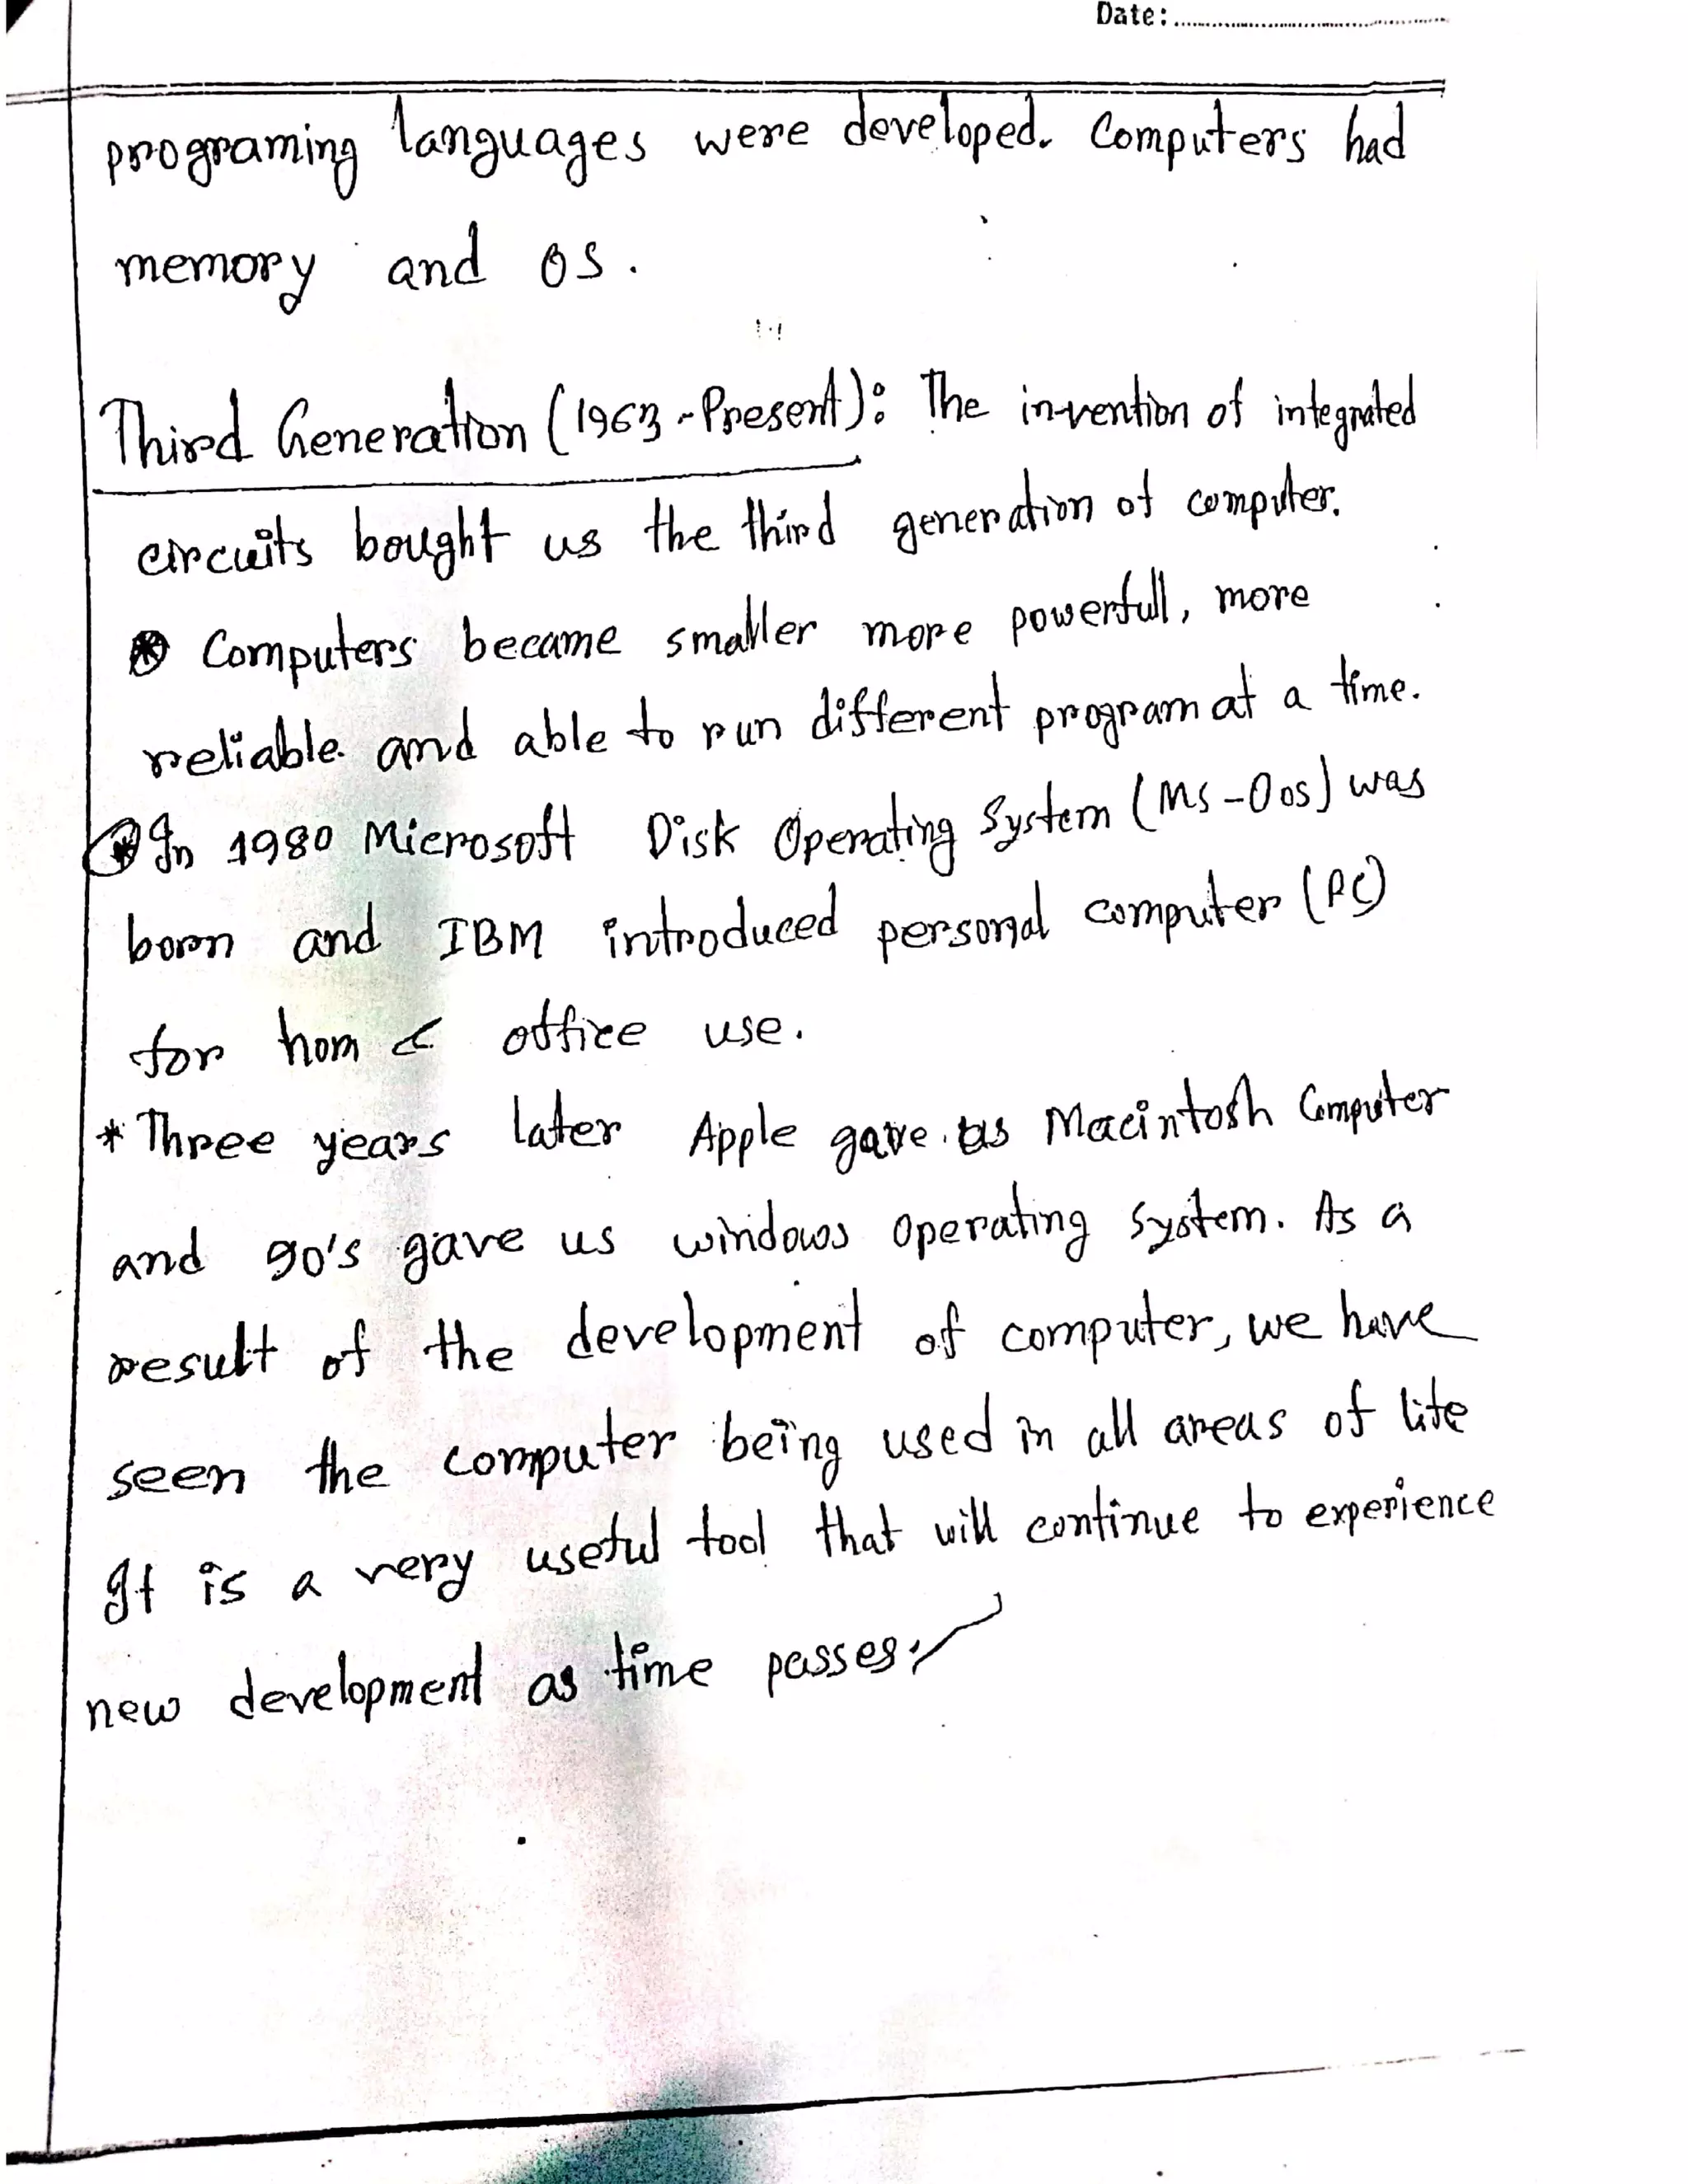 Date:
programing languages were developed. Computers had
memory and OS.
Third Generation (1963-Present): The invention of integrated
circuits bought us the third generation of computer.
* Computers became smaller more powerfull, more
reliable and able to run different program at a time.
* In 1980 Microsoft Disk Operating System (MS-Dos) was
born and IBM introduced personal computer (PC)
for hom & office use.
* Three years later Apple gave us Macintosh Computer
and 90's gave us windows operating system. As a
result of the development of computer, we have
seen the computer being used in all areas of life
It is a very useful tool that will continue to experience
new development as time passes.